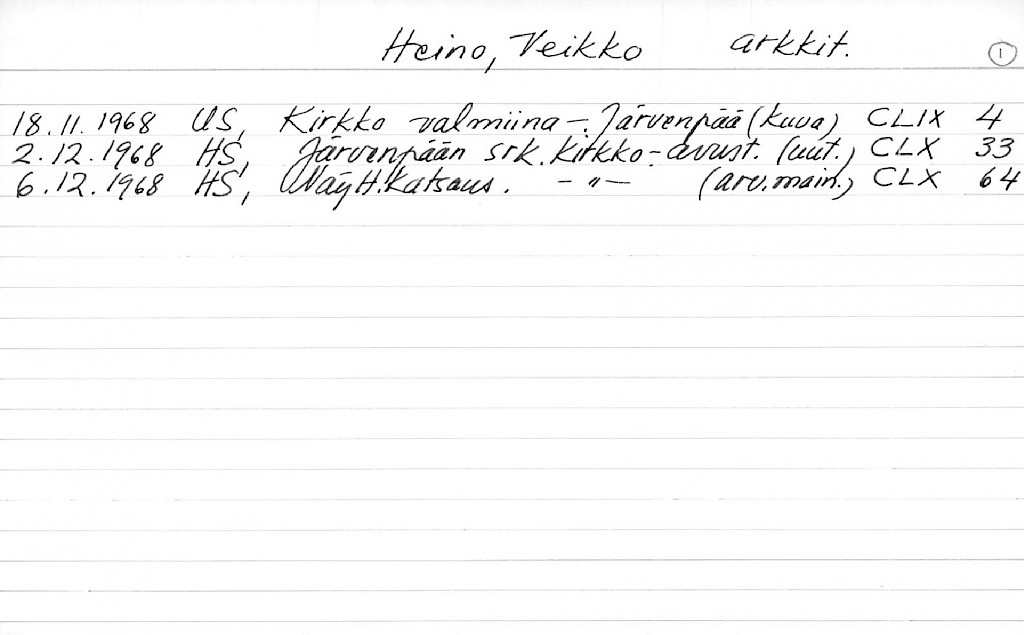 Heino, Veikko arkkit. 1
18.11.1968 US, Kirkko valmiina - Järvenpää (kuva) CLIX 4
2.12.1968 HS, Järvenpään srk. kirkko - avust. (uut.) CLX 33
6.12.1968 HS, Näytt.katsaus. - " - (arv.main.) CLX 64